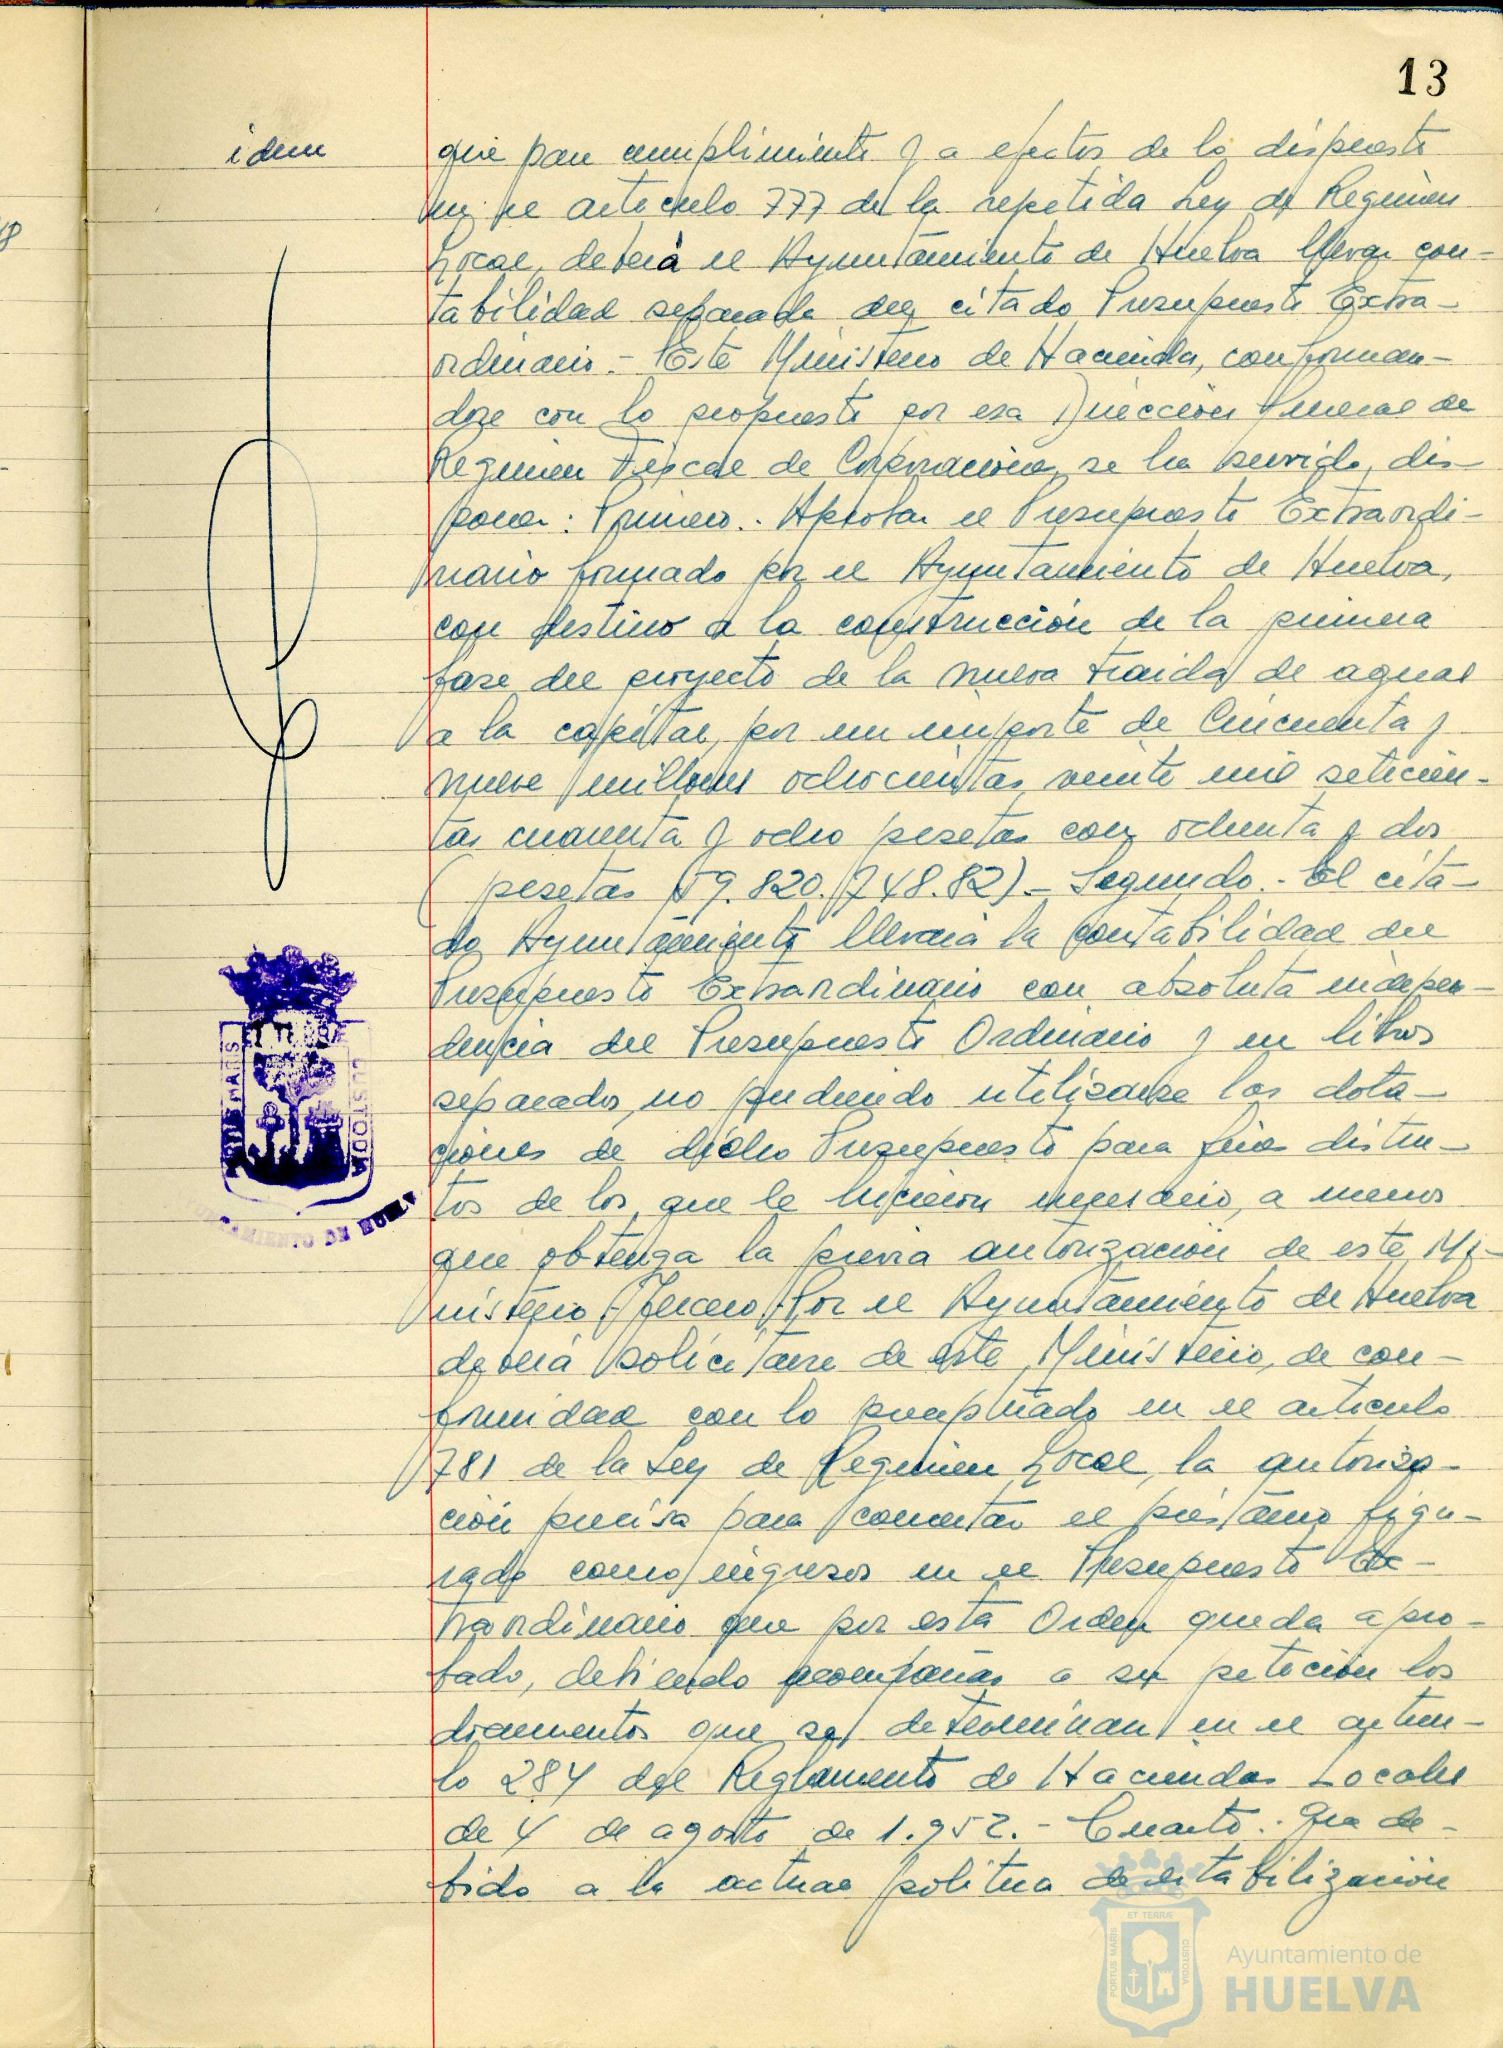 13
idem
que para cumplimiento y a efectos de lo dispuesto
en el articulo 777 de la repetida Ley de Regimen
Local, deberá el Ayuntamiento de Huelva llevar con-
tabilidad separada del citado Presupuesto Extra-
ordinario.- Este Ministerio de Hacienda, conforman-
dose con lo propuesto por esa Dirección General de
Regimen Fiscal de Corporaciones, se ha servido, dis-
poner: Primero.- Aprobar el Presupuesto Extraordi-
nario formado por el Ayuntamiento de Huelva,
con destino a la construcción de la primera
fase del proyecto de la nueva traida de aguas
a la capital, por un importe de Cincuenta y
nueve millones ochocientas veinte mil setecien-
tas cuarenta y ocho pesetas con ochenta y dos
(pesetas 59.820.748.82).- Segundo.- El cita-
do Ayuntamiento llevará la contabilidad del
Presupuesto Extraordinario con absoluta indepen-
dencia del Presupuesto Ordinario y en libros
separados, no pudiendo utilizarse las dota-
ciones de dicho Presupuesto para fines distin-
tos de los que le hicieron necesario, a menos
que obtenga la previa autorización de este Mi-
nisterio.- Tercero.- Por el Ayuntamiento de Huelva
deberá solicitarse de este Ministerio, de con-
formidad con lo preceptuado en el articulo
781 de la Ley de Regimen Local, la autoriza-
ción precisa para concertar el préstamo figu-
rado como ingresos en el Presupuesto Ex-
traordinario que por esta Orden queda apro-
bado, debiendo acompañar a su petición los
documentos que se determinan en el articu-
lo 284 del Reglamento de Haciendas Locales
de 4 de agosto de 1.952.- Cuarto.- Que de-
bido a la actual politica de estabilización
PORTUS MARIS ET TERRÆ CUSTODIA
AYUNTAMIENTO DE HUELVA
PORTUS MARIS ET TERRÆ CUSTODIA
Ayuntamiento de
HUELVA